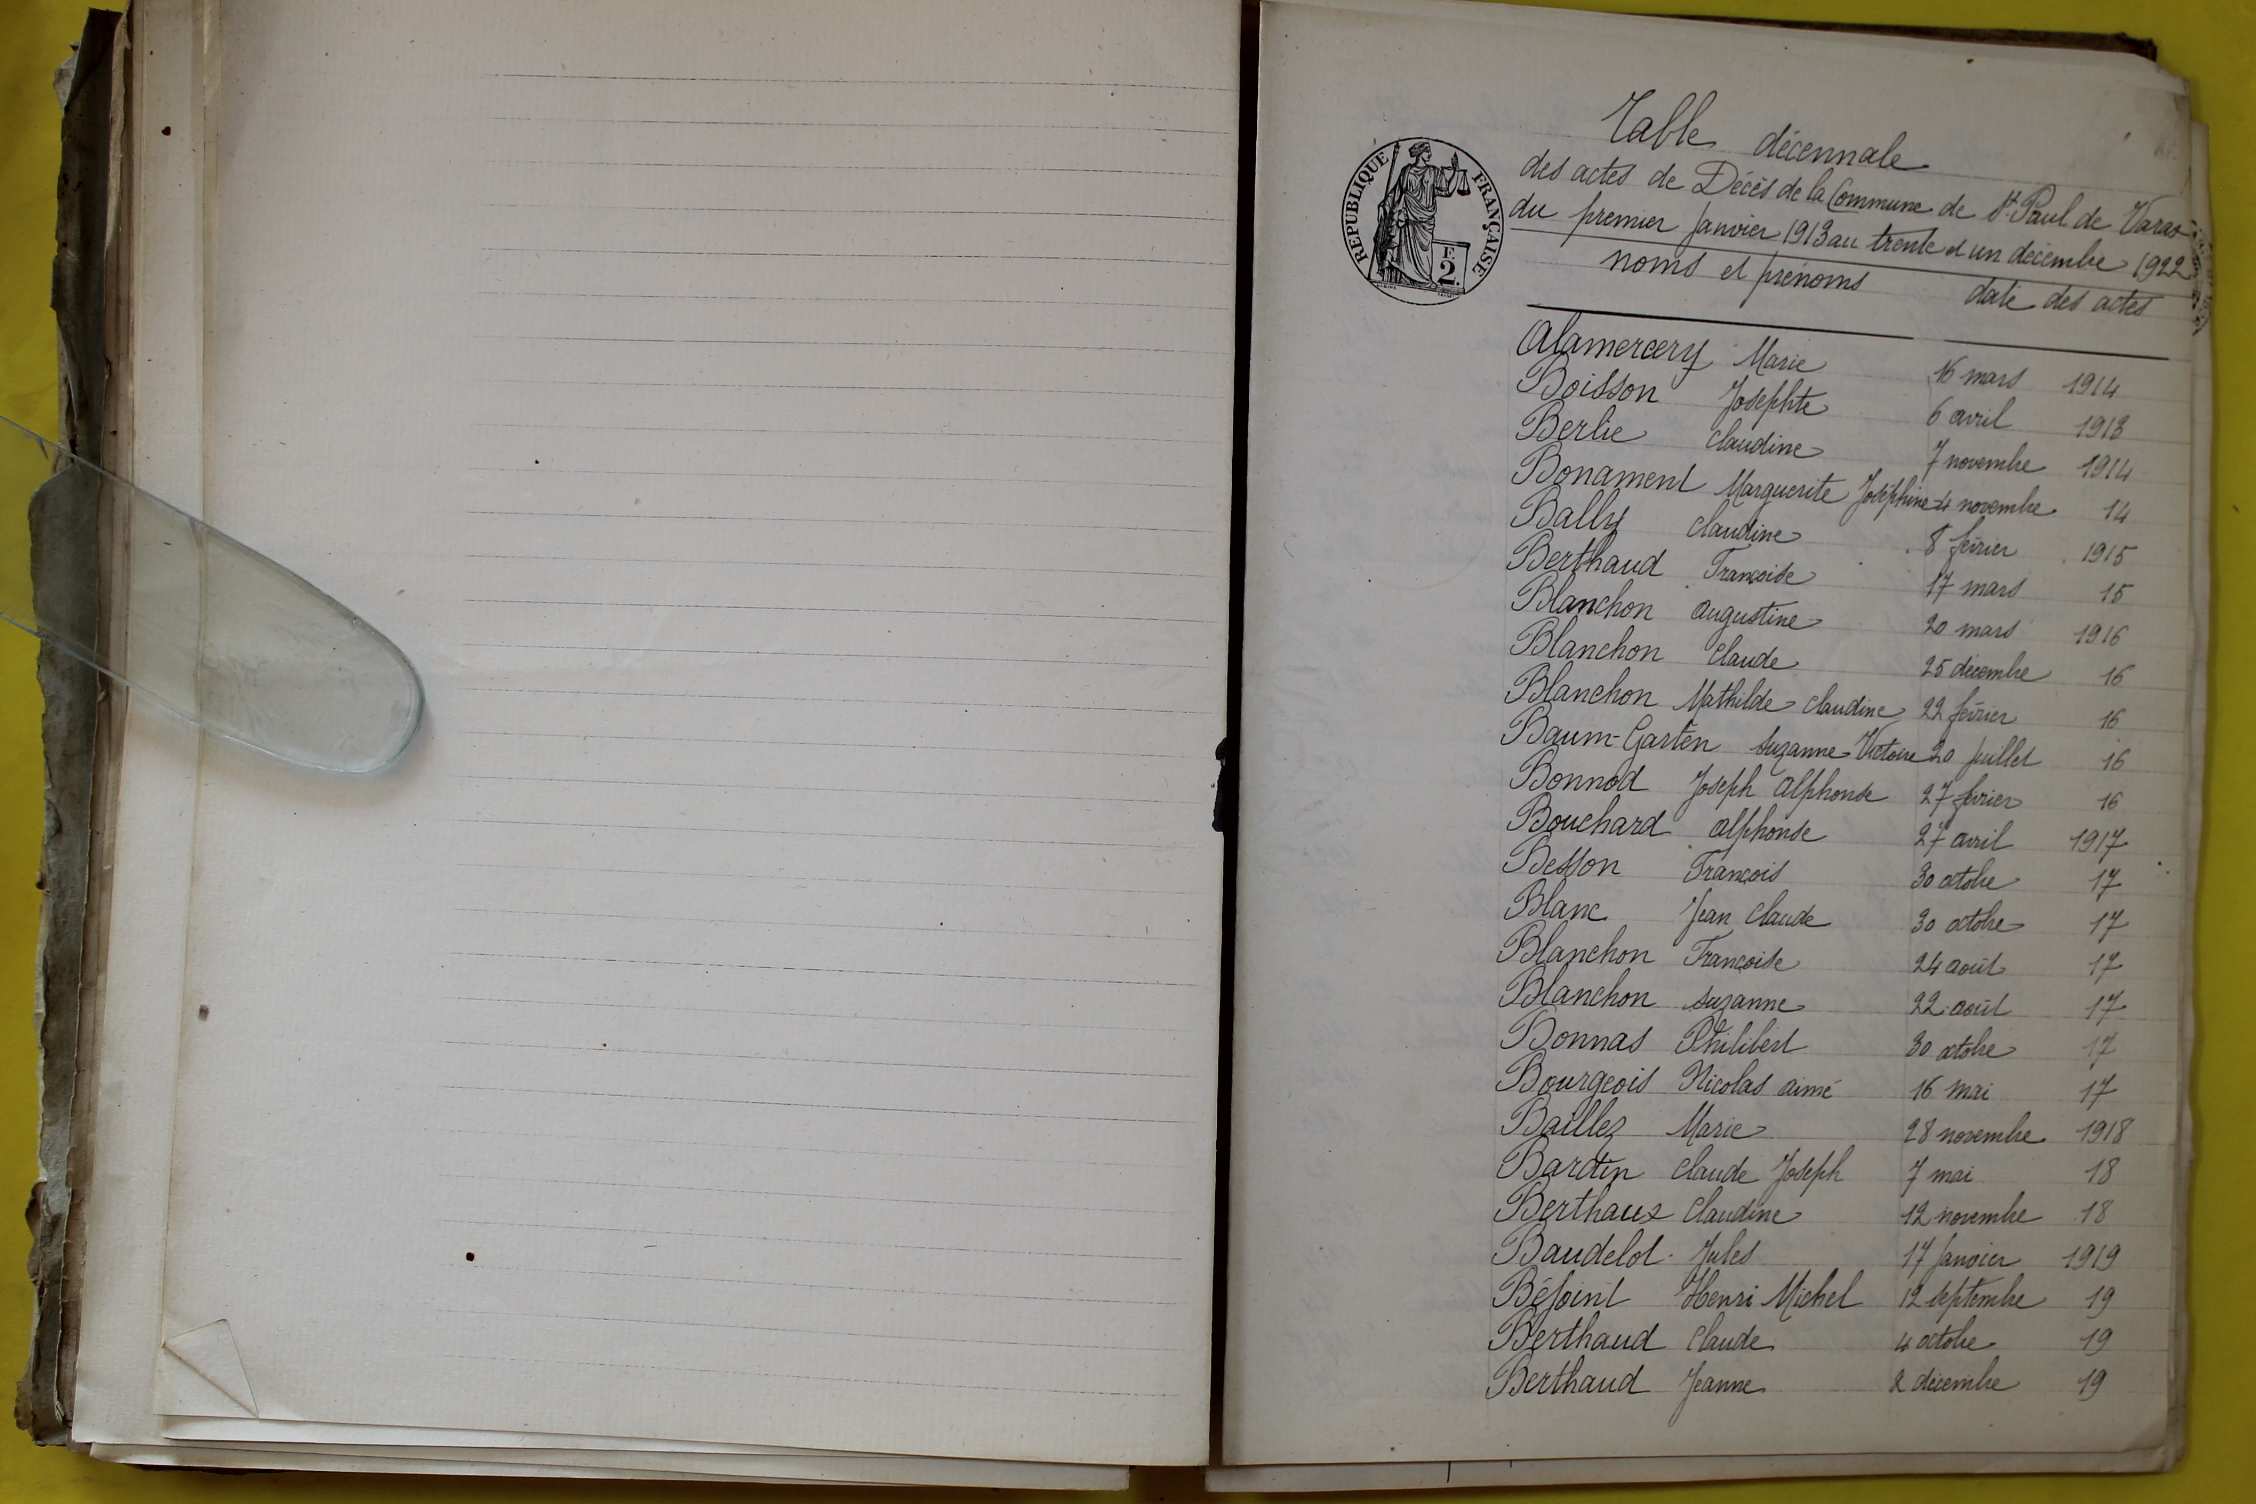 Table décennale
des actes de Décès de la Commune de St Paul de Varax
du premier Janvier 1913 au trente et un décembre 1922
RÉPUBLIQUE FRANÇAISE
F.
2.
noms et prénoms date des actes
Alamercery Marie 16 mars 1914
Boisson Josephte 6 avril 1913
Berlie Claudine 7 novembre 1914
Bonament Marguerite Joséphine 4 novembre 14
Bally Claudine 8 février 1915
Berthaud Françoise 17 mars 15
Blanchon Augustine 20 mars 1916
Blanchon Claude 25 décembre 16
Blanchon Mathilde Claudine 22 février 16
Baum-Garten Suzanne Victoire 20 Juillet 16
Bonnod Joseph Alphonse 27 février 16
Bouchard Alphonse 27 avril 1917
Besson François 30 octobre 17
Blanc Jean Claude 30 octobre 17
Blanchon Françoise 24 août 17
Blanchon Suzanne 22 août 17
Bonnas Philibert 30 octobre 17
Bourgeois Nicolas aimé 16 mai 17
Baillez Marie 28 novembre 1918
Bardin Claude Joseph 7 mai 18
Berthaux Claudine 12 novembre 18
Baudelot Jules 17 Janvier 1919
Béjoint Henri Michel 12 septembre 19
Berthaud Claude 4 octobre 19
Berthaud Jeanne 2 décembre 19